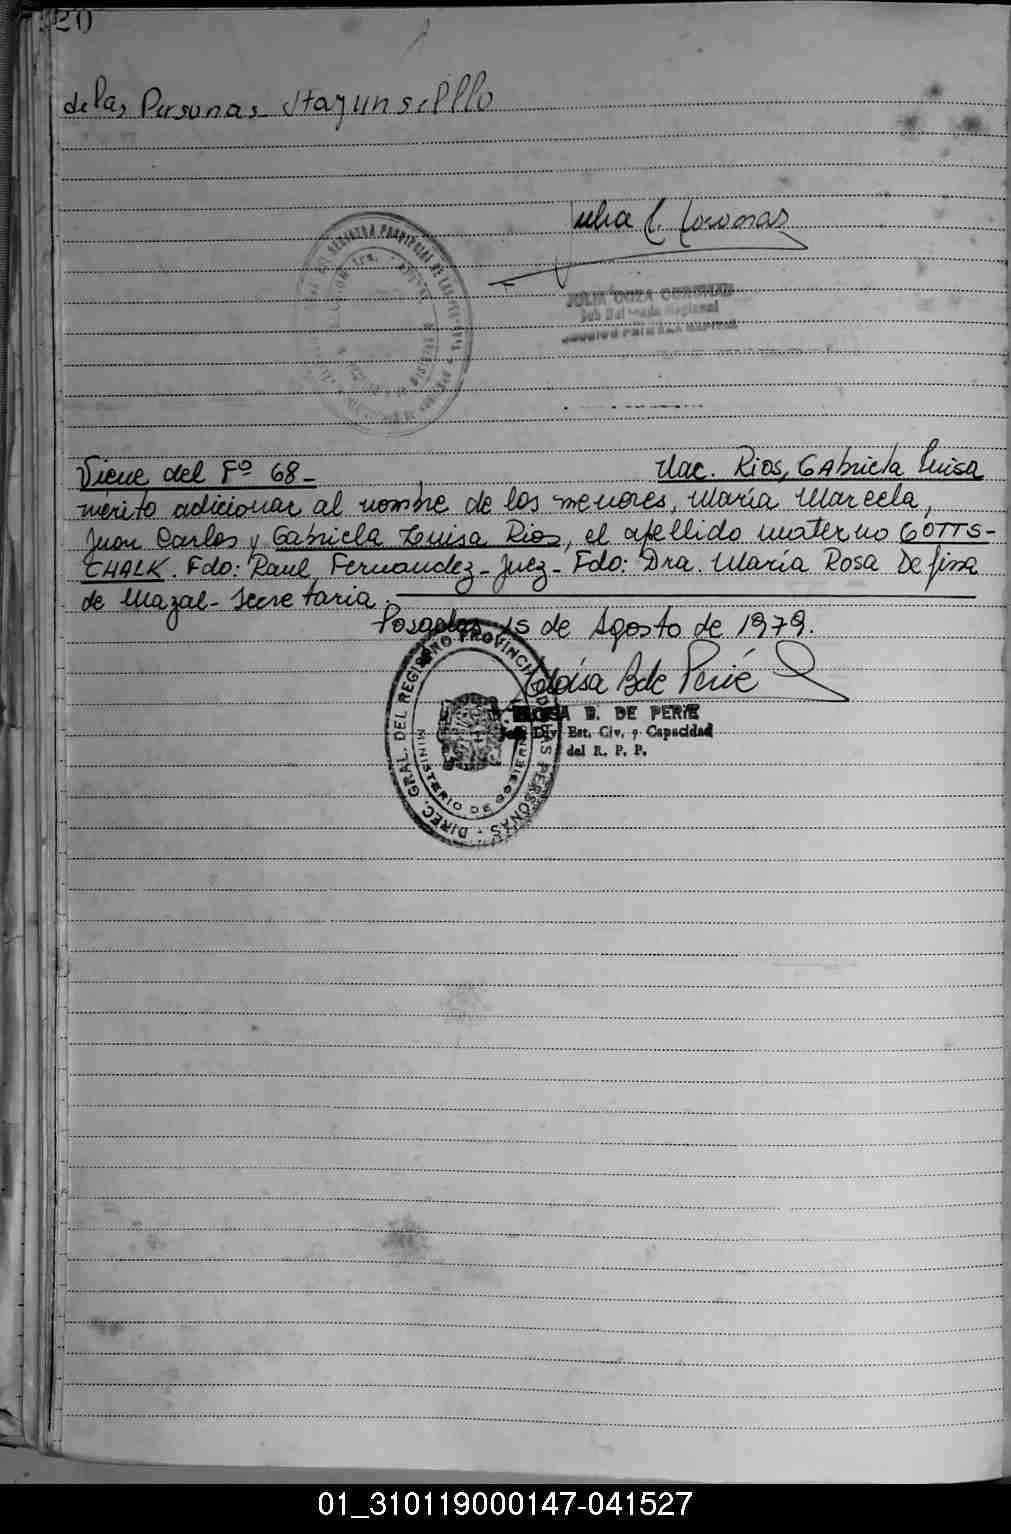 20
de las Personas Hay un sello
Julia C. Coronas
Sub Delegada Regional
Viene del Fº 68 - Nac. Rios, GAbriela Luisa
mérito adicionar al nombre de los menores, María Marcela,
Juan Carlos y Gabriela Luisa Rios, el apellido materno GOTTS-
CHALK. Fdo: Raul Fernandez - Juez - Fdo: Dra. María Rosa De
de Mazal - Secretaria.
Posadas, 15 de Agosto de 1979.
Eloísa B de Perié
ELOISA B. DE PERIE
Jefe Div. Est. Civ. y Capacidad
del R. P. P.
DIREC. GRAL. DEL REGISTRO PROVINCIAL DE LAS PERSONAS
MINISTERIO DE GOBIERNO
01_310119000147-041527